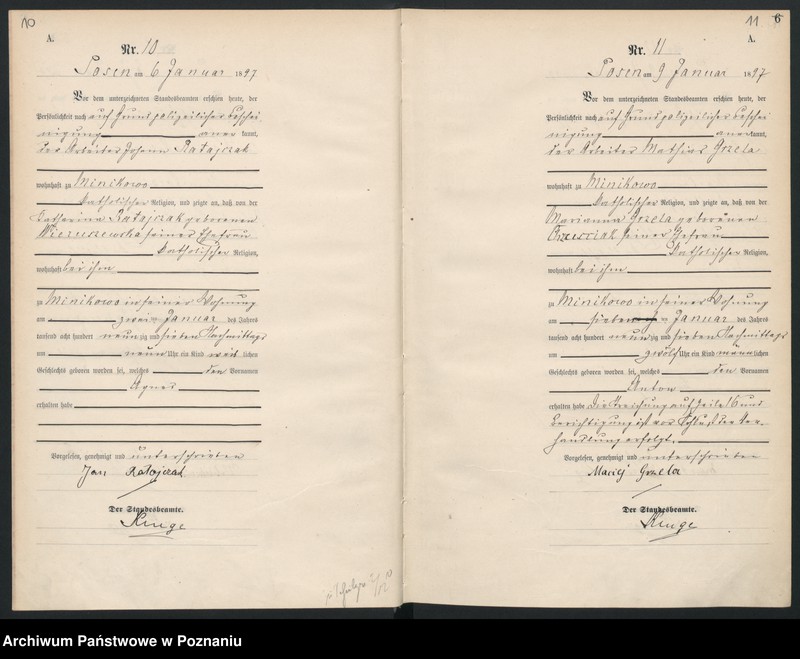 10
A.
Nr. 10
Posen am 6 Januar 1897
Vor dem unterzeichneten Standesbeamten erschien heute, der
Persönlichkeit nach auf Grund polizeilicher Beschei
nigung anerkannt,
der Arbeiter Johann Ratajczak
wohnhaft zu Minikowo
katholischer Religion, und zeigte an, daß von der
Katharina Ratajczak geborenen
Wieruszewska seiner Ehefrau
katholischer Religion,
wohnhaft bei ihm
zu Minikowo in seiner Wohnung
am zwei ten Januar des Jahres
tausend acht hundert neunzig und sieben Nachmittags
um neun Uhr ein Kind weiblichen
Geschlechts geboren worden sei, welches den Vornamen
Agnes
erhalten habe
Vorgelesen, genehmigt und unterschrieben
Jan Ratajczak
Der Standesbeamte.
Kluge
11 6
A.
Nr. 11
Posen am 9 Januar 1897
Vor dem unterzeichneten Standesbeamten erschien heute, der
Persönlichkeit nach auf Grund polizeilicher Beschei
nigung anerkannt,
der Arbeiter Mathias Grzela
wohnhaft zu Minikowo
katholischer Religion, und zeigte an, daß von der
Marianna Grzela geborenen
seiner Ehefrau
katholischer Religion,
wohnhaft bei ihm
zu Minikowo in seiner Wohnung
am sieben ten Januar des Jahres
tausend acht hundert neunzig und sieben Nachmittags
um zwölf Uhr ein Kind männlichen
Geschlechts geboren worden sei, welches den Vornamen
Anton
erhalten habe Die Streichung auf Zeile 16 und
Berichtigung ist vor Schluß der Ver-
handlung erfolgt.
Vorgelesen, genehmigt und unterschrieben
Maciej Grzela
Der Standesbeamte.
Kluge
Archiwum Państwowe w Poznaniu